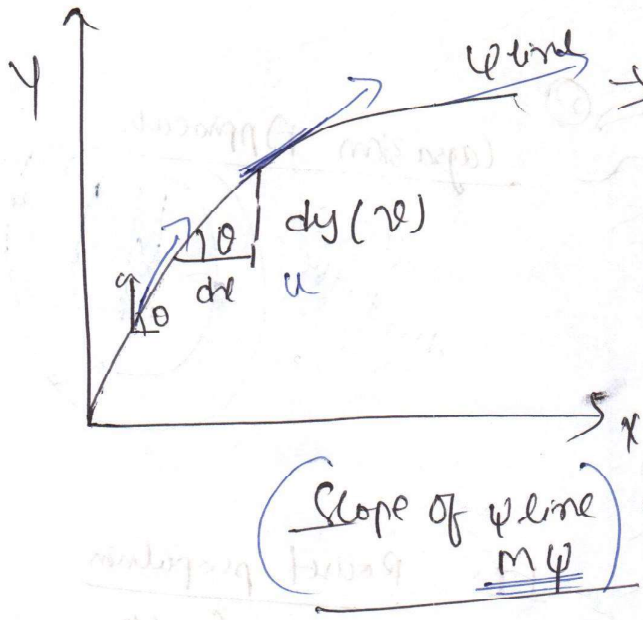 Y
ψ line
θ
dy (v)
dx u
θ
X
Slope of ψ line
mψ